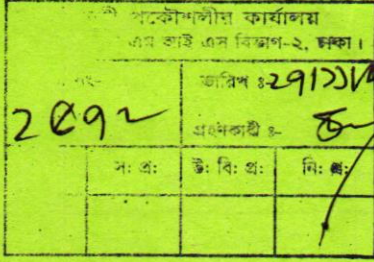 প্রকৌশলীর কার্যালয়
এম আই এস বিভাগ-২, ঢাকা।
নং-
তারিখ ঃ-
২৫৭২
গ্রহনকারী ঃ-
স: প্র: উ: বি: প্র: নি: প্র: